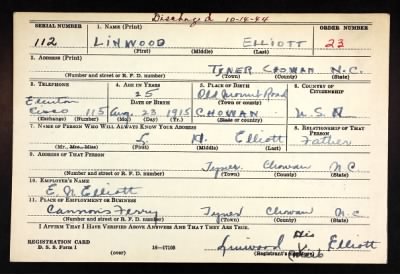 Discharged 10-14-44
SERIAL NUMBER 1. NAME (Print) ORDER NUMBER
112 LINWOOD ELLIOTT 23
(First) (Middle) (Last)
2. ADDRESS (Print)
TYNER CHOWAN N.C.
(Number and street or R. F. D. number) (Town) (County) (State)
3. TELEPHONE 4. AGE IN YEARS 5. PLACE OF BIRTH 6. COUNTRY OF CITIZENSHIP
Edenton 25 Old Mount Road
DATE OF BIRTH (Town or county)
115 Aug. 23 1915 CHOWAN U.S.A
(Exchange) (Number) (Mo.) (Day) (Yr.) (State or country)
7. NAME OF PERSON WHO WILL ALWAYS KNOW YOUR ADDRESS 8. RELATIONSHIP OF THAT PERSON
Elliott Father
(Mr., Mrs., Miss) (First) (Middle) (Last)
9. ADDRESS OF THAT PERSON
Tyner Chowan N C
(Number and street or R. F. D. number) (Town) (County) (State)
10. EMPLOYER'S NAME
E. N. Elliott
11. PLACE OF EMPLOYMENT OR BUSINESS
Cannons Ferry Tyner Chowan N.C.
(Number and street or R. F. D. number) (Town) (County) (State)
I AFFIRM THAT I HAVE VERIFIED ABOVE ANSWERS AND THAT THEY ARE TRUE.
REGISTRATION CARD His
D. S. S. Form 1 (over) 16-17105 Linwood Elliott
(Registrant's signature)